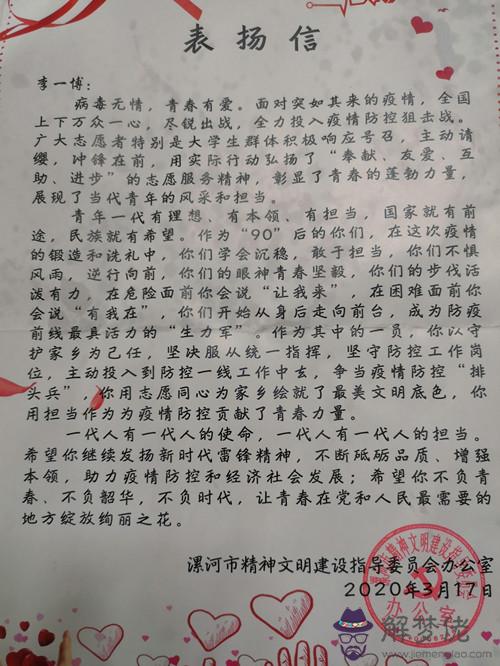 表扬信
李一博：
病毒无情，青春有爱。面对突如其来的疫情，全国
上下万众一心，尽锐出战，全力投入疫情防控狙击战。
广大志愿者特别是大学生群体积极响应号召，主动请
缨，冲锋在前，用实际行动弘扬了“奉献、友爱、互
助、进步”的志愿服务精神，彰显了青春的蓬勃力量，
展现了当代青年的风采和担当。
青年一代有理想、有本领、有担当，国家就有前
途，民族就有希望。作为“90”后的你们，在这次疫情
的锻造和洗礼中，你们学会沉稳，敢于担当，你们不惧
风雨，逆行向前，你们的眼神青春坚毅，你们的步伐活
泼有力，在危险面前你会说“让我来”，在困难面前你
会说“有我在”，你们开始从身后走向前台，成为防疫
前线最具活力的“生力军”。作为其中的一员，你以守
护家乡为己任，坚决服从统一指挥，坚守防控工作岗
位，主动投入到防控一线工作中去，争当疫情防控“排
头兵”，你用志愿同心为家乡绘就了最美文明底色，你
用担当作为为疫情防控贡献了青春力量。
一代人有一代人的使命，一代人有一代人的担当。
希望你继续发扬新时代雷锋精神，不断砥砺品质、增强
本领，助力疫情防控和经济社会发展；希望你不负青
春、不负韶华，不负时代，让青春在党和人民最需要的
地方绽放绚丽之花。
漯河市精神文明建设指导委员会办公室
2020年3月17日
漯河市精神文明建设指导委员会
办公室
解梦佬
www.jiemenglao.com